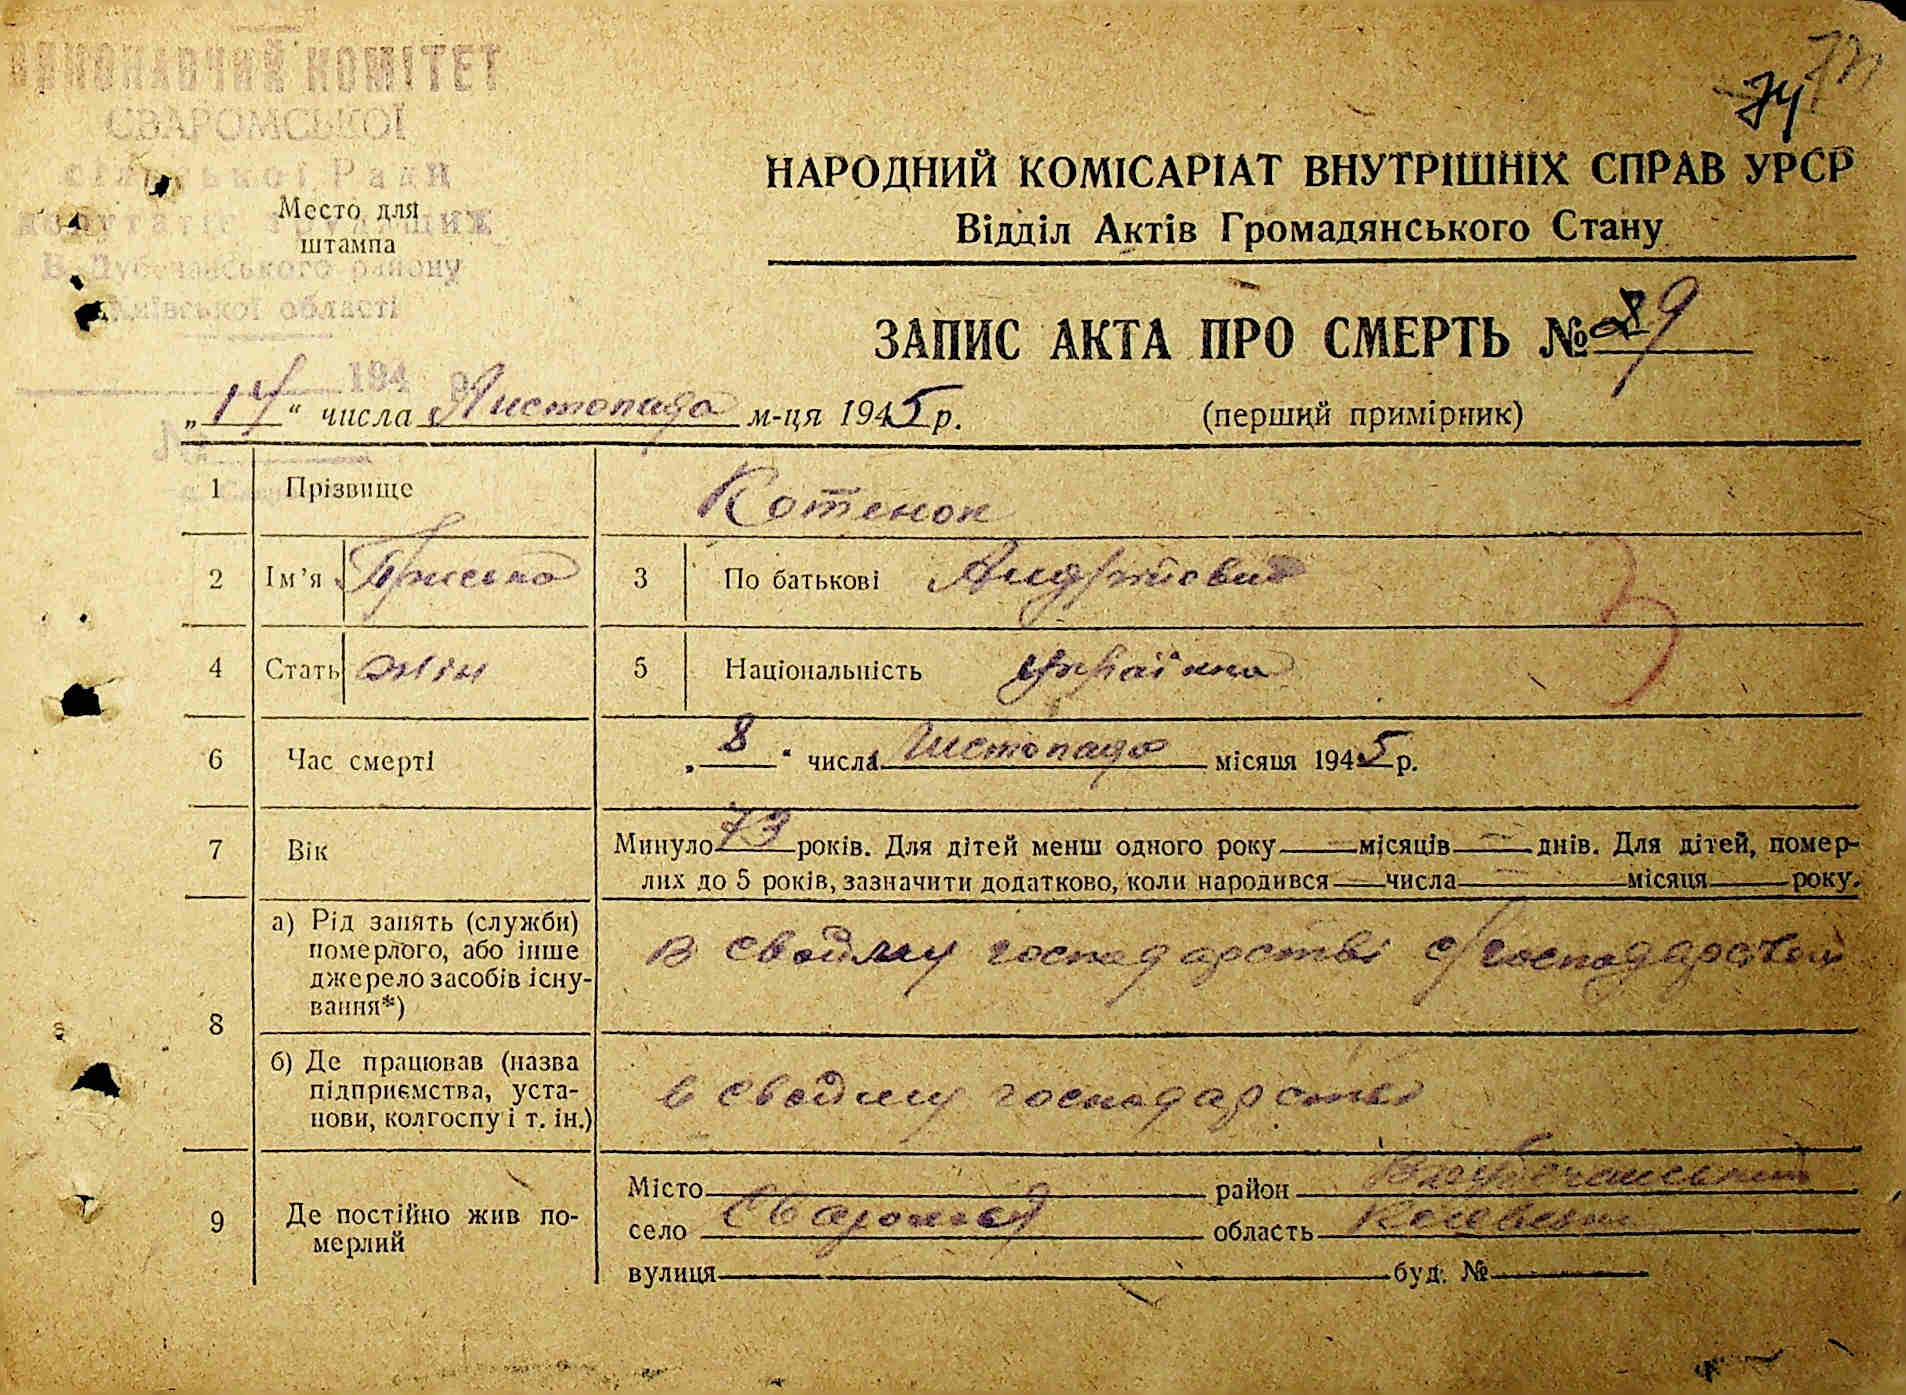 ВИКОНАВЧИЙ КОМІТЕТ
СВАРОМСЬКОЇ
сільської Ради
депутатів трудящих
В. Дубечанського району
Київської області
Место для
штампа
194 р.
74
НАРОДНИЙ КОМІСАРІАТ ВНУТРІШНІХ СПРАВ УРСР
Відділ Актів Громадянського Стану
ЗАПИС АКТА ПРО СМЕРТЬ № 89
„14“ числа Листопада м-ця 1945 р.
(перший примірник)
1 Прізвище Котенок
2 Ім'я Приська 3 По батькові Андрійовна
4 Стать жін 5 Національність Українка
6 Час смерті „8“ числа Листопада місяця 1945 р.
7 Вік Минуло 73 років. Для дітей менш одного року — місяців — днів. Для дітей, помер-
лих до 5 років, зазначити додатково, коли народився — числа — місяця — року.
8 а) Рід занять (служби)
померлого, або інше
джерело засобів існу-
вання*)
в своїму господарстві с/господарством
б) Де працював (назва
підприємства, уста-
нови, колгоспу і т. ін.)
в своїму господарстві
9 Де постійно жив по-
мерлий
Місто район В Дубечанський
село Сваромья область Киевська
вулиця буд. №